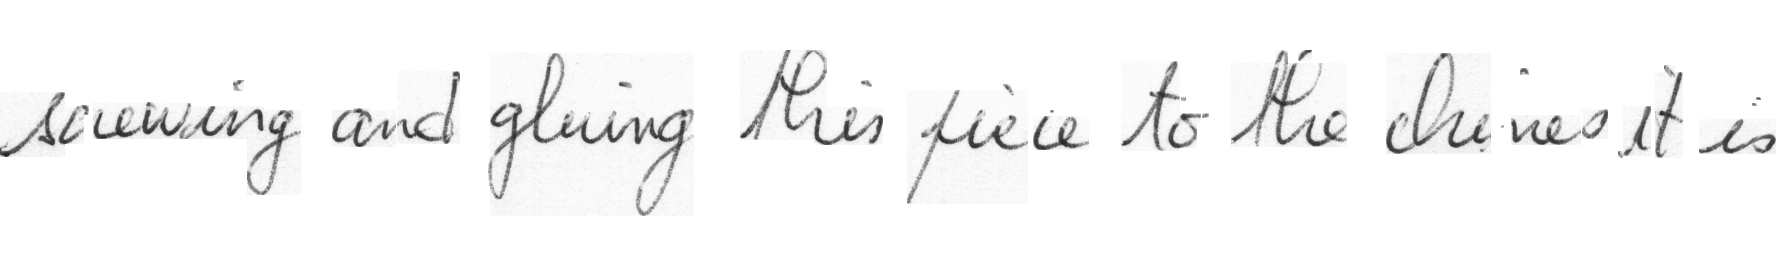 screwing and gluing this piece to the chines it is